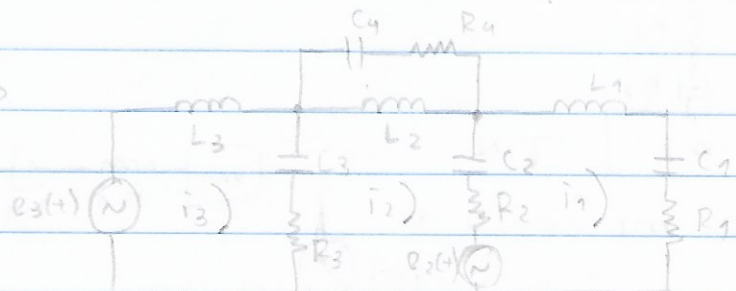 C4 R4
L1
L3 L2
C3 C2 C1
e3(t) i3 i2 R2 i1 R1
R3 e2(t)